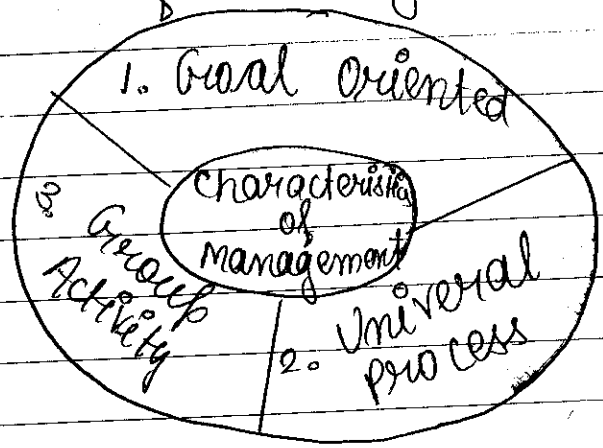 1. Goal Oriented
characteristics
of
management
2. Univeral
process
3. Group
Activity